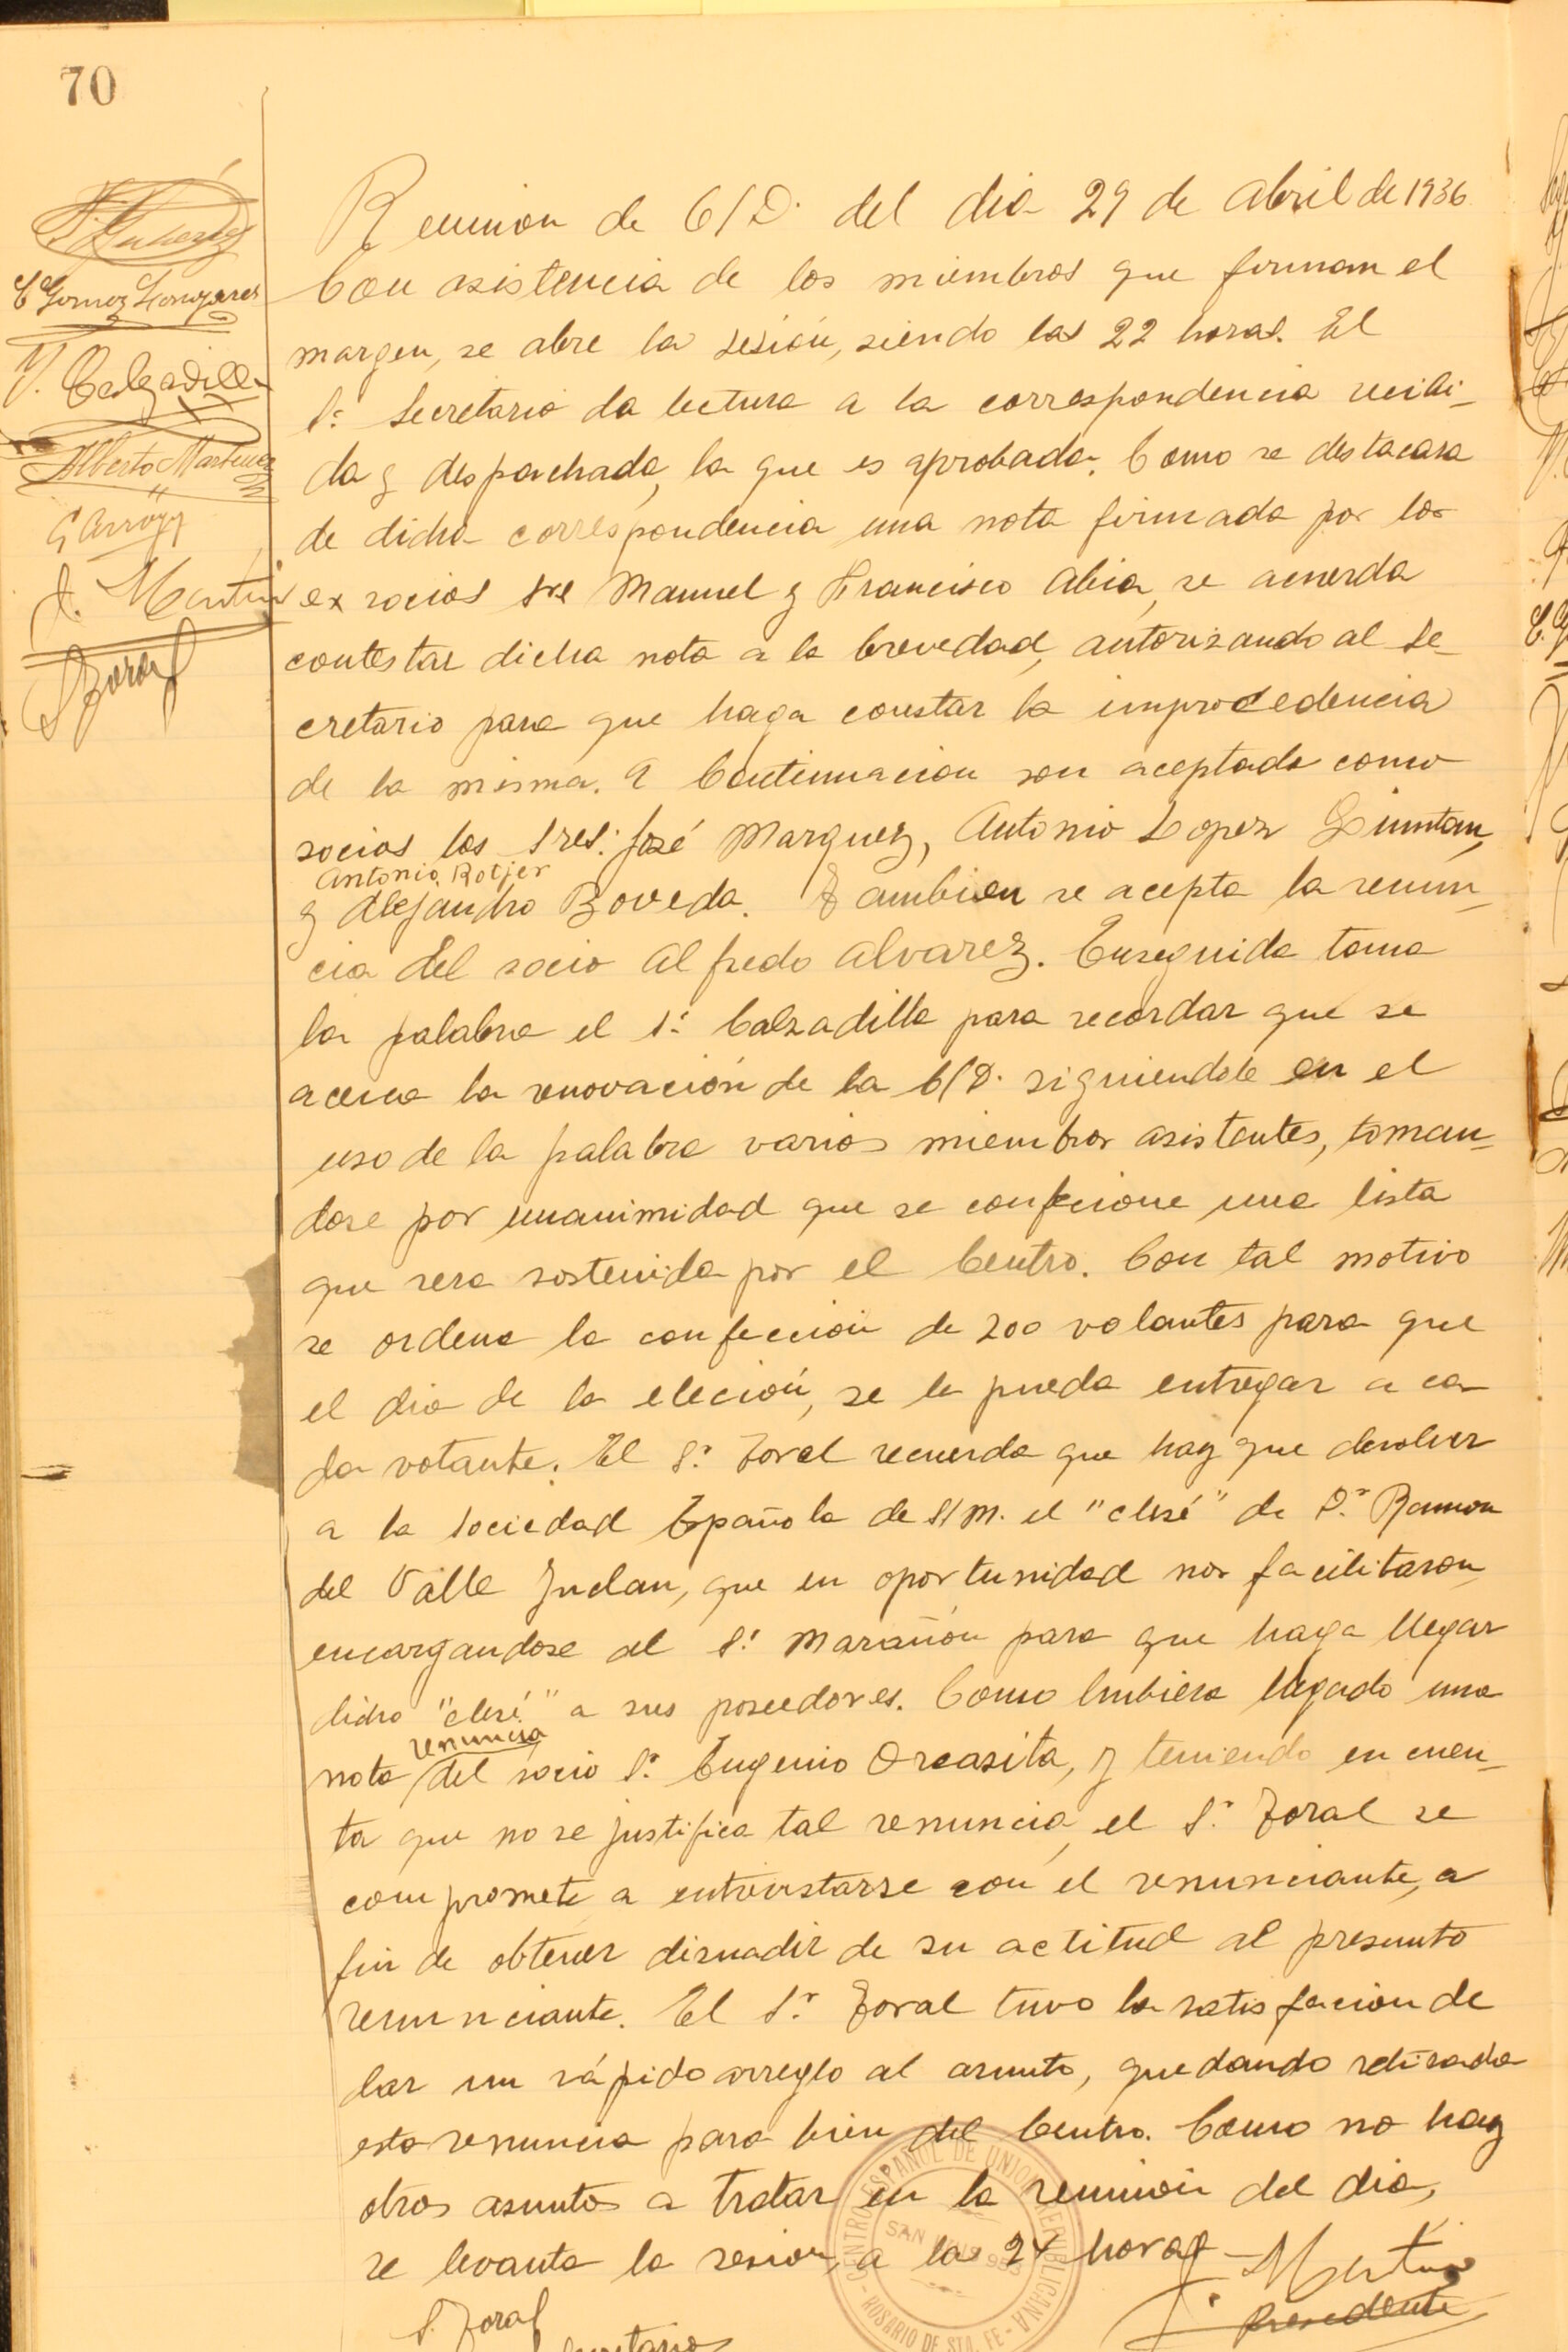 70
Reunion de C/D. del dia 29 de Abril de 1936
Con asistencia de los miembros que firman el
margen, se abre la sesión, siendo las 22 horas. El
Sr. Secretario da lectura a la correspondencia recibi-
da y despachada, la que es aprobada. Como se destacara
de dicha correspondencia una nota firmada por los
ex socios Sres Manuel y Francisco Abia, se acuerda
contestar dicha nota a la brevedad, autorizando al Se-
cretario para que haga constar la improcedencia
de la misma. A Continuacion son aceptado como
socios los Sres: José Marquez, Antonio Lopez Quintan,
Antonio Rotjer
y Alejandro Boveda. Tambien se acepta la renun-
cia del socio Alfredo Alvarez. Enseguida toma
la palabra el Sr. Calzadilla para recordar que se
acerca la renovación de la C/D. siguiendole en el
uso de la palabra varios miembros asistentes, toman-
dose por unanimidad que se confecione una lista
que sera sostenida por el Centro. Con tal motivo
se ordena la confección de 200 volantes para que
el dia de la eleción, se le pueda entregar a ca-
da votante. El Sr. Toral recuerda que hay que devolver
a la Sociedad Española de S/M. el "clisé" de Dr. Ramon
del Valle Inclan, que en oportunidad nos facilitaron,
encargandose al Sr. Marañón para que haga llegar
dicho "clisé" a sus poseedores. Como hubiera llegado una
renuncia
nota del socio Sr. Eugenio Orcasita, y teniendo en cuen-
ta que no se justifica tal renuncia, el Sr. Toral se
compromete a entrevistarse con el renunciante, a
fin de obtener disuadir de su actitud al presunto
renunciante. El Sr. Toral tuvo la satisfacion de
dar un rápido arreglo al asunto, quedando retirada
esta renuncia para bien del Centro. Como no hay
otros asuntos a tratar en la reunión del dia,
se levanta la sesion, a las 24 horas
Martin
S. Toral
Secretario
Presidente
C Gomez Longares
V. Calzadilla
Alberto Martinez
G Arroyo
J. Martin
S Toral
CENTRO ESPAÑOL DE UNION REPUBLICANA
ROSARIO DE STA. FE
SAN LUIS